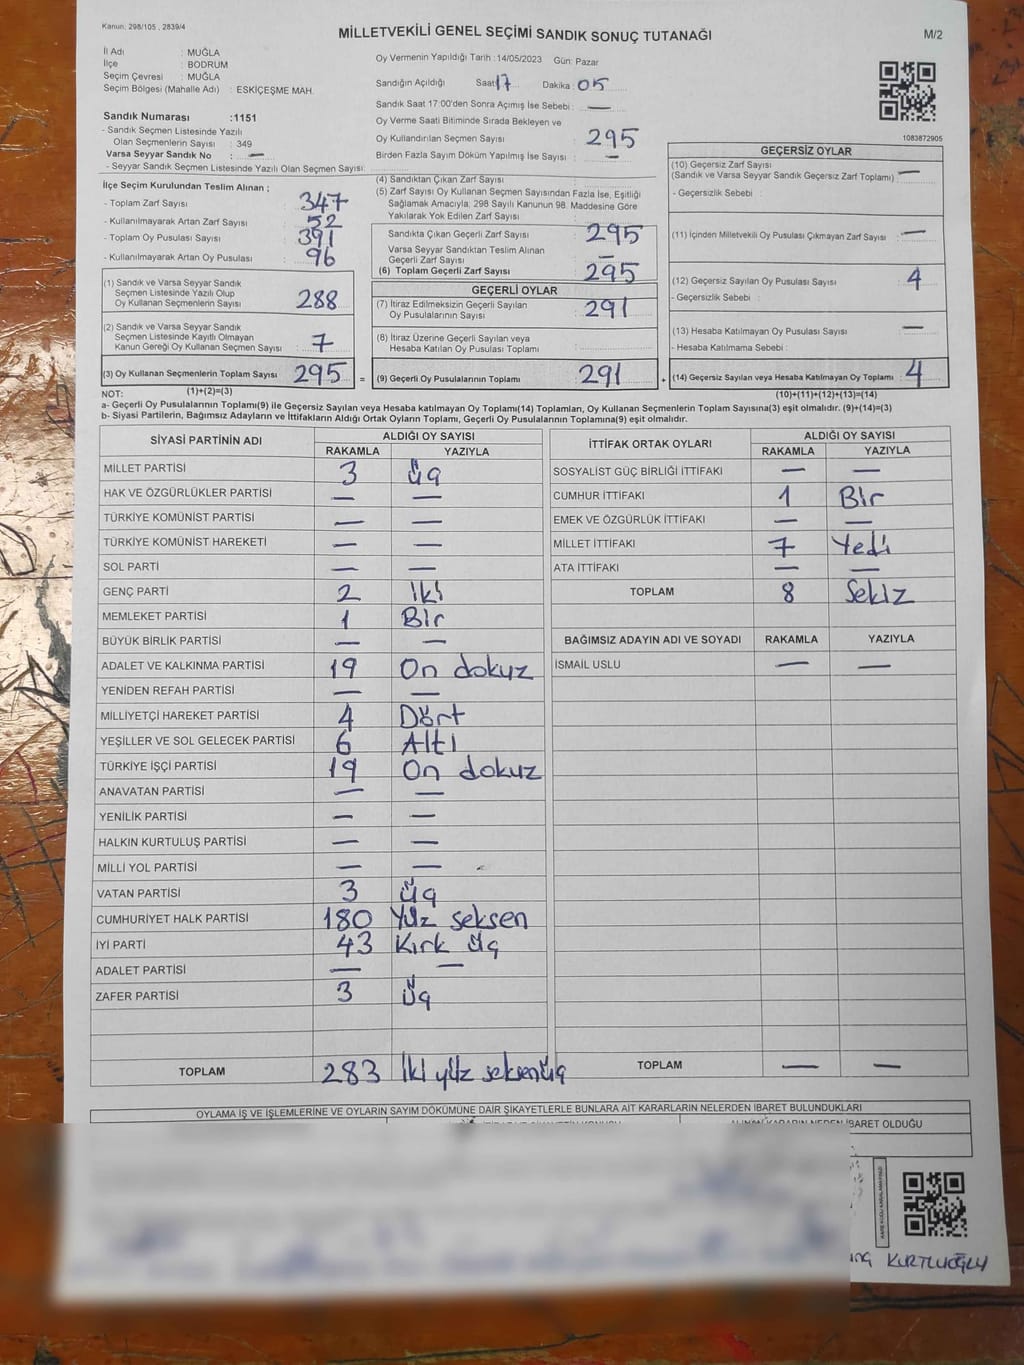 Kanun: 298/105 , 2839/4
MİLLETVEKİLİ GENEL SEÇİMİ SANDIK SONUÇ TUTANAĞI
M/2
İl Adı : MUĞLA
İlçe : BODRUM
Seçim Çevresi : MUĞLA
Seçim Bölgesi (Mahalle Adı) : ESKİÇEŞME MAH.
Sandık Numarası :1151
- Sandık Seçmen Listesinde Yazılı
Olan Seçmenlerin Sayısı : 349
Varsa Seyyar Sandık No : —
- Seyyar Sandık Seçmen Listesinde Yazılı Olan Seçmen Sayısı:
İlçe Seçim Kurulundan Teslim Alınan ;
- Toplam Zarf Sayısı : 347
- Kullanılmayarak Artan Zarf Sayısı : 52
- Toplam Oy Pusulası Sayısı : 391
- Kullanılmayarak Artan Oy Pusulası : 96
(1) Sandık ve Varsa Seyyar Sandık
Seçmen Listesinde Yazılı Olup
Oy Kullanan Seçmenlerin Sayısı : 288
(2) Sandık ve Varsa Seyyar Sandık
Seçmen Listesinde Kayıtlı Olmayan
Kanun Gereği Oy Kullanan Seçmen Sayısı : 7
(3) Oy Kullanan Seçmenlerin Toplam Sayısı 295
Oy Vermenin Yapıldığı Tarih :14/05/2023 Gün: Pazar
Sandığın Açıldığı Saat: 17 Dakika : 05
Sandık Saat 17:00'den Sonra Açımış İse Sebebi : —
Oy Verme Saati Bitiminde Sırada Bekleyen ve
Oy Kullandırılan Seçmen Sayısı : 295
Birden Fazla Sayım Döküm Yapılmış İse Sayısı : —
(4) Sandıktan Çıkan Zarf Sayısı :
(5) Zarf Sayısı Oy Kullanan Seçmen Sayısından Fazla İse, Eşitliği
Sağlamak Amacıyla, 298 Sayılı Kanunun 98. Maddesine Göre
Yakılarak Yok Edilen Zarf Sayısı :
Sandıkta Çıkan Geçerli Zarf Sayısı : 295
Varsa Seyyar Sandıktan Teslim Alınan
Geçerli Zarf Sayısı : —
(6) Toplam Geçerli Zarf Sayısı : 295
GEÇERLİ OYLAR
(7) İtiraz Edilmeksizin Geçerli Sayılan
Oy Pusulalarının Sayısı : 291
(8) İtiraz Üzerine Geçerli Sayılan veya
Hesaba Katılan Oy Pusulası Toplamı :
= (9) Geçerli Oy Pusulalarının Toplamı : 291
1083872905
GEÇERSİZ OYLAR
(10) Geçersiz Zarf Sayısı
(Sandık ve Varsa Seyyar Sandık Geçersiz Zarf Toplamı) : —
- Geçersizlik Sebebi :
(11) İçinden Milletvekili Oy Pusulası Çıkmayan Zarf Sayısı : —
(12) Geçersiz Sayılan Oy Pusulası Sayısı : 4
- Geçersizlik Sebebi :
(13) Hesaba Katılmayan Oy Pusulası Sayısı : —
- Hesaba Katılmama Sebebi :
+ (14) Geçersiz Sayılan veya Hesaba Katılmayan Oy Toplamı : 4
NOT: (1)+(2)=(3) (10)+(11)+(12)+(13)=(14)
a- Geçerli Oy Pusulalarının Toplamı(9) ile Geçersiz Sayılan veya Hesaba katılmayan Oy Toplamı(14) Toplamları, Oy Kullanan Seçmenlerin Toplam Sayısına(3) eşit olmalıdır. (9)+(14)=(3)
b- Siyasi Partilerin, Bağımsız Adayların ve İttifakların Aldığı Ortak Oyların Toplamı, Geçerli Oy Pusulalarının Toplamına(9) eşit olmalıdır.
SİYASİ PARTİNİN ADI ALDIĞI OY SAYISI
RAKAMLA YAZIYLA
MİLLET PARTİSİ 3 Üç
HAK VE ÖZGÜRLÜKLER PARTİSİ — —
TÜRKİYE KOMÜNİST PARTİSİ — —
TÜRKİYE KOMÜNİST HAREKETİ — —
SOL PARTİ — —
GENÇ PARTİ 2 İki
MEMLEKET PARTİSİ 1 Bir
BÜYÜK BİRLİK PARTİSİ — —
ADALET VE KALKINMA PARTİSİ 19 On dokuz
YENİDEN REFAH PARTİSİ — —
MİLLİYETÇİ HAREKET PARTİSİ 4 Dört
YEŞİLLER VE SOL GELECEK PARTİSİ 6 Altı
TÜRKİYE İŞÇİ PARTİSİ 19 On dokuz
ANAVATAN PARTİSİ — —
YENİLİK PARTİSİ — —
HALKIN KURTULUŞ PARTİSİ — —
MİLLİ YOL PARTİSİ — —
VATAN PARTİSİ 3 Üç
CUMHURİYET HALK PARTİSİ 180 Yüz seksen
İYİ PARTİ 43 Kırk üç
ADALET PARTİSİ — —
ZAFER PARTİSİ 3 Üç
TOPLAM 283 İki yüz seksenüç
İTTİFAK ORTAK OYLARI ALDIĞI OY SAYISI
RAKAMLA YAZIYLA
SOSYALİST GÜÇ BİRLİĞİ İTTİFAKI — —
CUMHUR İTTİFAKI 1 Bir
EMEK VE ÖZGÜRLÜK İTTİFAKI — —
MİLLET İTTİFAKI 7 Yedi
ATA İTTİFAKI — —
TOPLAM 8 Sekiz
BAĞIMSIZ ADAYIN ADI VE SOYADI RAKAMLA YAZIYLA
İSMAİL USLU — —
TOPLAM — —
OYLAMA İŞ VE İŞLEMLERİNE VE OYLARIN SAYIM DÖKÜMÜNE DAİR ŞİKAYETLERLE BUNLARA AİT KARARLARIN NELERDEN İBARET BULUNDUKLARI
ALINAN KARARIN NEDEN İBARET OLDUĞU
KURTLUOĞLU